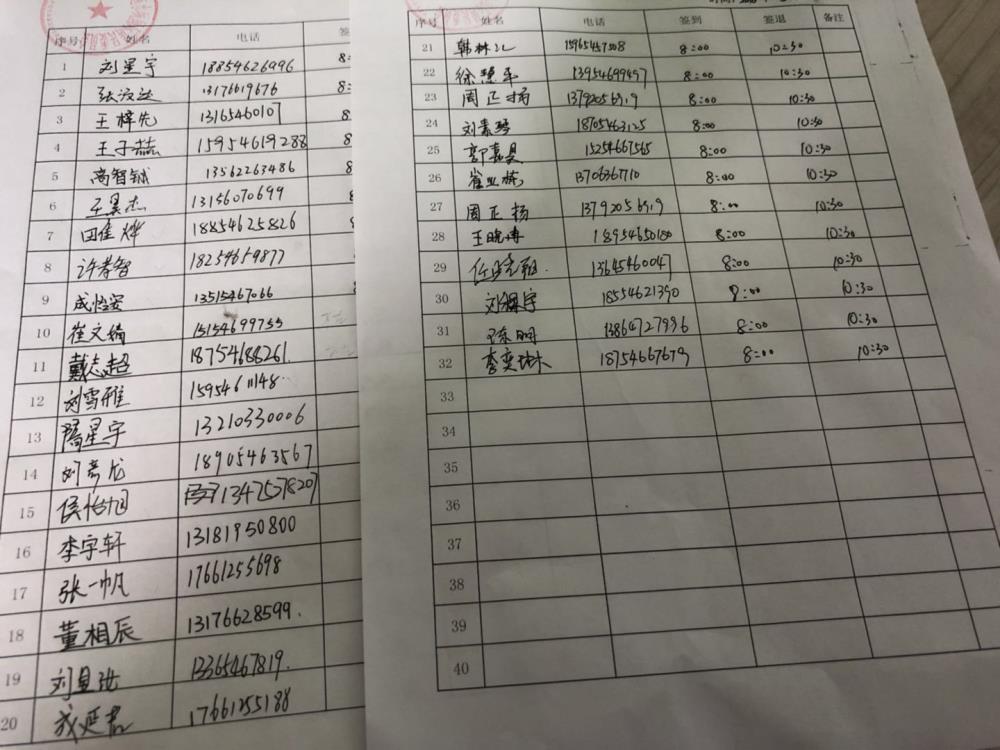 序号 姓名 电话 签
1 刘星宇 18854626996 8:
2 张 13176619676 8:
3 王梓先 13165460107 8
4 王子赫 15954619288 8
5 高智铖 13562263486 8
6 王昊杰 13156070699
7 田佳烨 18854625826
8 许孝智 18254659877
9 成怡安 13515467066
10 崔文婧 15154699755
11 戴志超 18754688261.
12 刘雪雅 15954611148
13 隋星宇 13210330006
14 刘彦龙 18905463567
15 侯怡旭 13475378207
16 李宇轩 13181950800
17 张一帆 17661255698
18 董相辰 13176628599.
19 刘 13365467819.
20 成延君 17661255188
序号 姓名 电话 签到 签退 备注
21 韩林 8:00 10:30
22 徐慧 13954699497 8:00 10:30
23 周正扬 13792056919 8:00 10:30
24 刘素琴 18705463125 8:00 10:30
25 郭嘉昊 15254667565 8:00 10:30
26 崔 13706367710 8:00 10:30
27 周正扬 13792056919 8:00 10:30
28 王晓博 18954650180 8:00 10:30
29 任 13645460047 8:00 10:30
30 刘 宇 18554621390 8:00 10:30
31 陈明 13864727996 8:00 10:30
32 李奕琳 18754667679 8:00 10:30
33
34
35
36
37
38
39
40